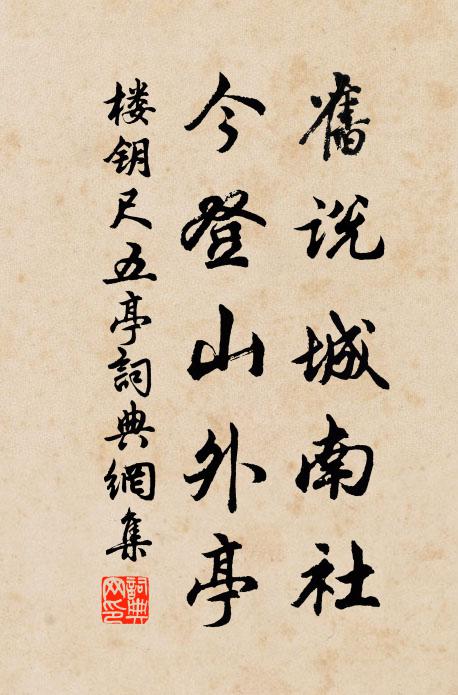 舊説城南社
今登山外亭
楼钥尺五亭詞典網集
詞典
网印